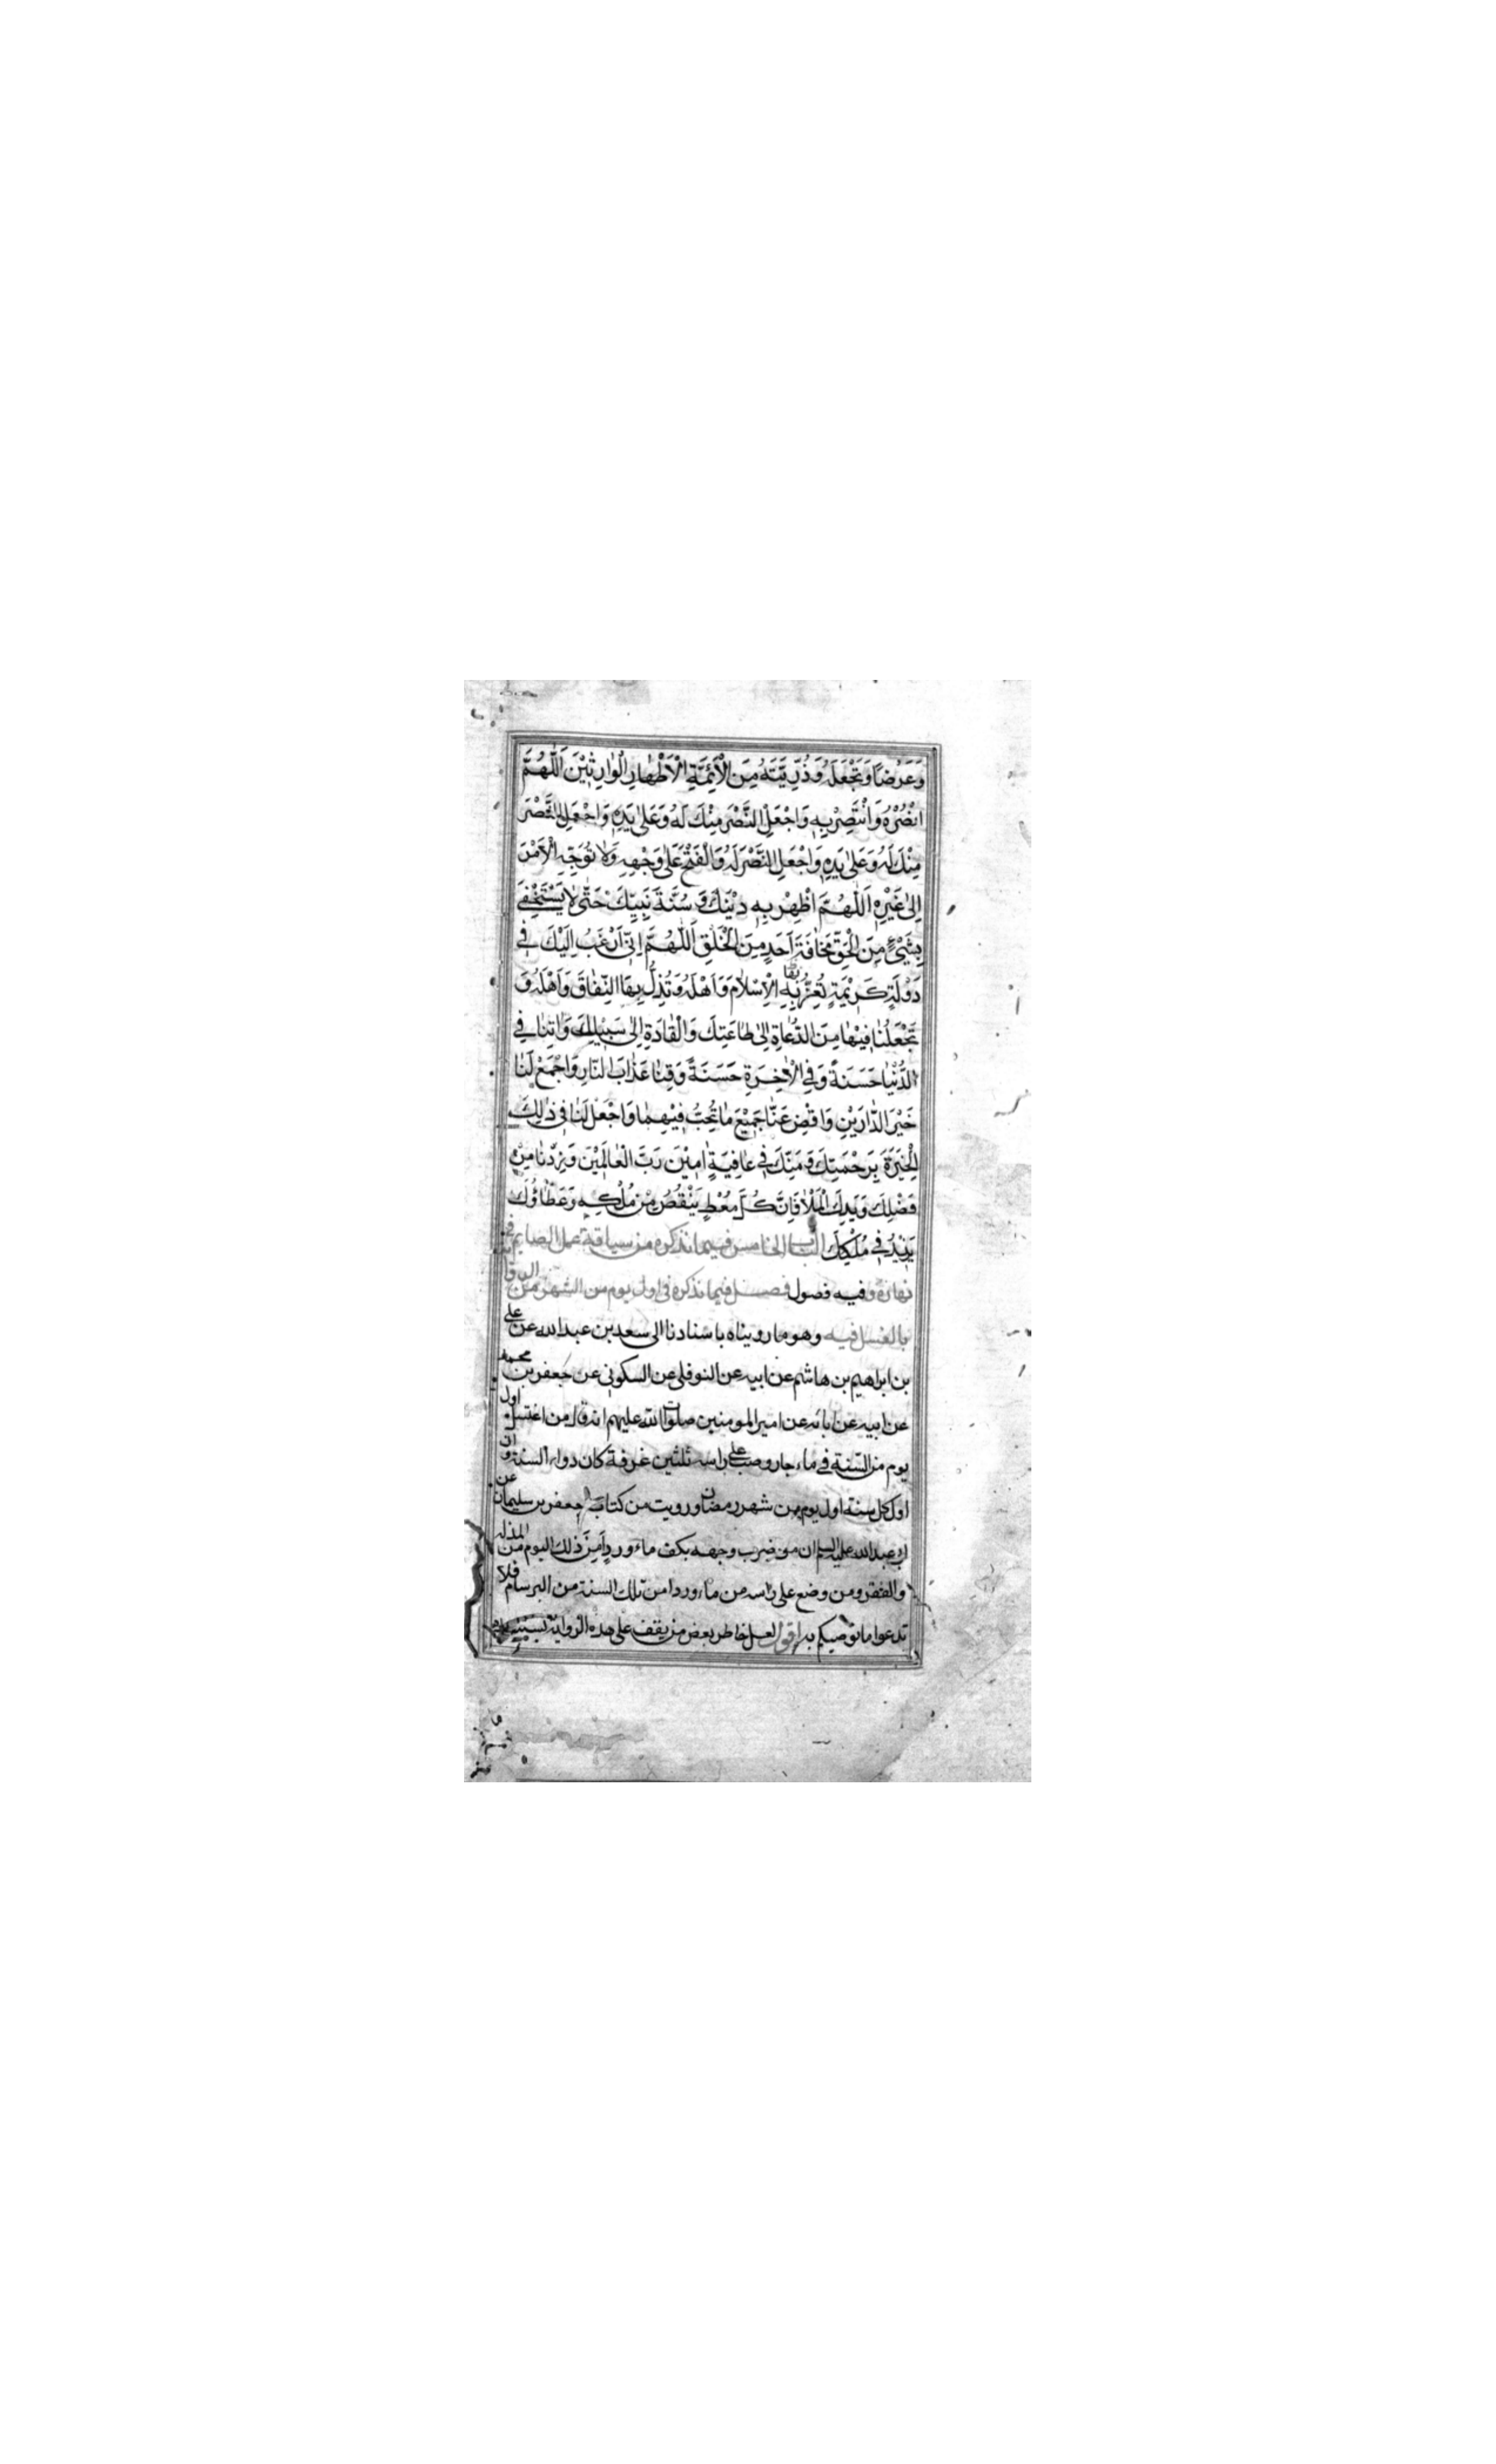 وَعَرْضًا وَتَجْعَلَهُ وَذُرِّيَّتَهُ مِنَ الْأَئِمَّةِ الْأَطْهَارِ الْوَارِثِيْنَ اَللّٰهُمَّ
انْصُرْهُ وَانْتَصِرْ بِهِ وَاجْعَلِ النَّصْرَ مِنْكَ لَهُ وَعَلٰى يَدِهِ وَاجْعَلِ النَّصْرَ
مِنْكَ لَهُ وَعَلٰى يَدِهِ وَاجْعَلِ النَّصْرَ لَهُ وَالْفَتْحَ عَلٰى وَجْهِهِ وَلَا تُوَجِّهِ الْأَمْرَ
اِلٰى غَيْرِهِ اَللّٰهُمَّ اظْهِرْ بِهِ دِيْنَكَ وَ سُنَّةَ نَبِيِّكَ حَتّٰى لَا يَسْتَخْفِيَ
بِشَيْءٍ مِنَ الْحَقِّ مَخَافَةَ اَحَدٍ مِنَ الْخَلْقِ اَللّٰهُمَّ اِنّى اَرْغَبُ اِلَيْكَ فِي
دَوْلَةٍ كَرِيْمَةٍ تُعِزُّ بِهَا الْاِسْلَامَ وَاَهْلَهُ وَتُذِلُّ بِهَا النِّفَاقَ وَاَهْلَهُ وَ
تَجْعَلُنَا فِيْهَا مِنَ الدُّعَاةِ اِلٰى طَاعَتِكَ وَالْقَادَةِ اِلٰى سَبِيْلِكَ وَاٰتِنَا فِي
الدُّنْيَا حَسَنَةً وَفِي الْاٰخِرَةِ حَسَنَةً وَقِنَا عَذَابَ النَّارِ وَاجْمَعْ لَنَا
خَيْرَ الدَّارَيْنِ وَاقْضِ عَنَّا جَمِيْعَ مَا تُحِبُّ فِيْهِمَا وَاجْعَلْ لَنَا فِي ذٰلِكَ
الْخِيَرَةَ بِرَحْمَتِكَ وَ مَنِّكَ فِي عَافِيَةٍ اٰمِيْنَ رَبَّ الْعَالَمِيْنَ وَ زِدْنَا مِنْ
فَضْلِكَ وَيَدِكَ الْمَلْأٰ فَاِنَّ كُلَّ مُعْطٍ يَنْقُصُ مِنْ مُلْكِهِ وَعَطَاؤُكَ
يَزِيْدُ فِي مُلْكِكَ الباب الخامس فيما نذكره من سياقة عمل الصايم في
نهاره وفيه فصول فصل فيما نذكره فى اول يوم من الشهر من الرواية
بالغسل فيه وهو ما رويناه باسنادنا الى سعد بن عبد الله عن على
بن ابراهيم بن هاشم عن ابيه عن النوفلى عن السكونى عن جعفر بن محمد
عن ابيه عن ابائه عن امير المومنين صلوات الله عليهم انه قال من اغتسل اول
يوم من السنة فى ماء جار وصب على راسه ثلثين غرفة كان دواء السنة وان
اول كل سنة اول يوم من شهر رمضان ورويت من كتاب جعفر بن سليمان عن
ابى عبد الله عليه السلم ان من ضرب وجهه بكف ماء ورد اَمِنَ ذلك اليوم من المذلة
والفقر ومن وضع على راسه من ماء ورد امن تلك السنة من البرسام فلا
تدعوا ما نوصيكم به اقول لعل خاطر بعض من يقف على هذه الرواية